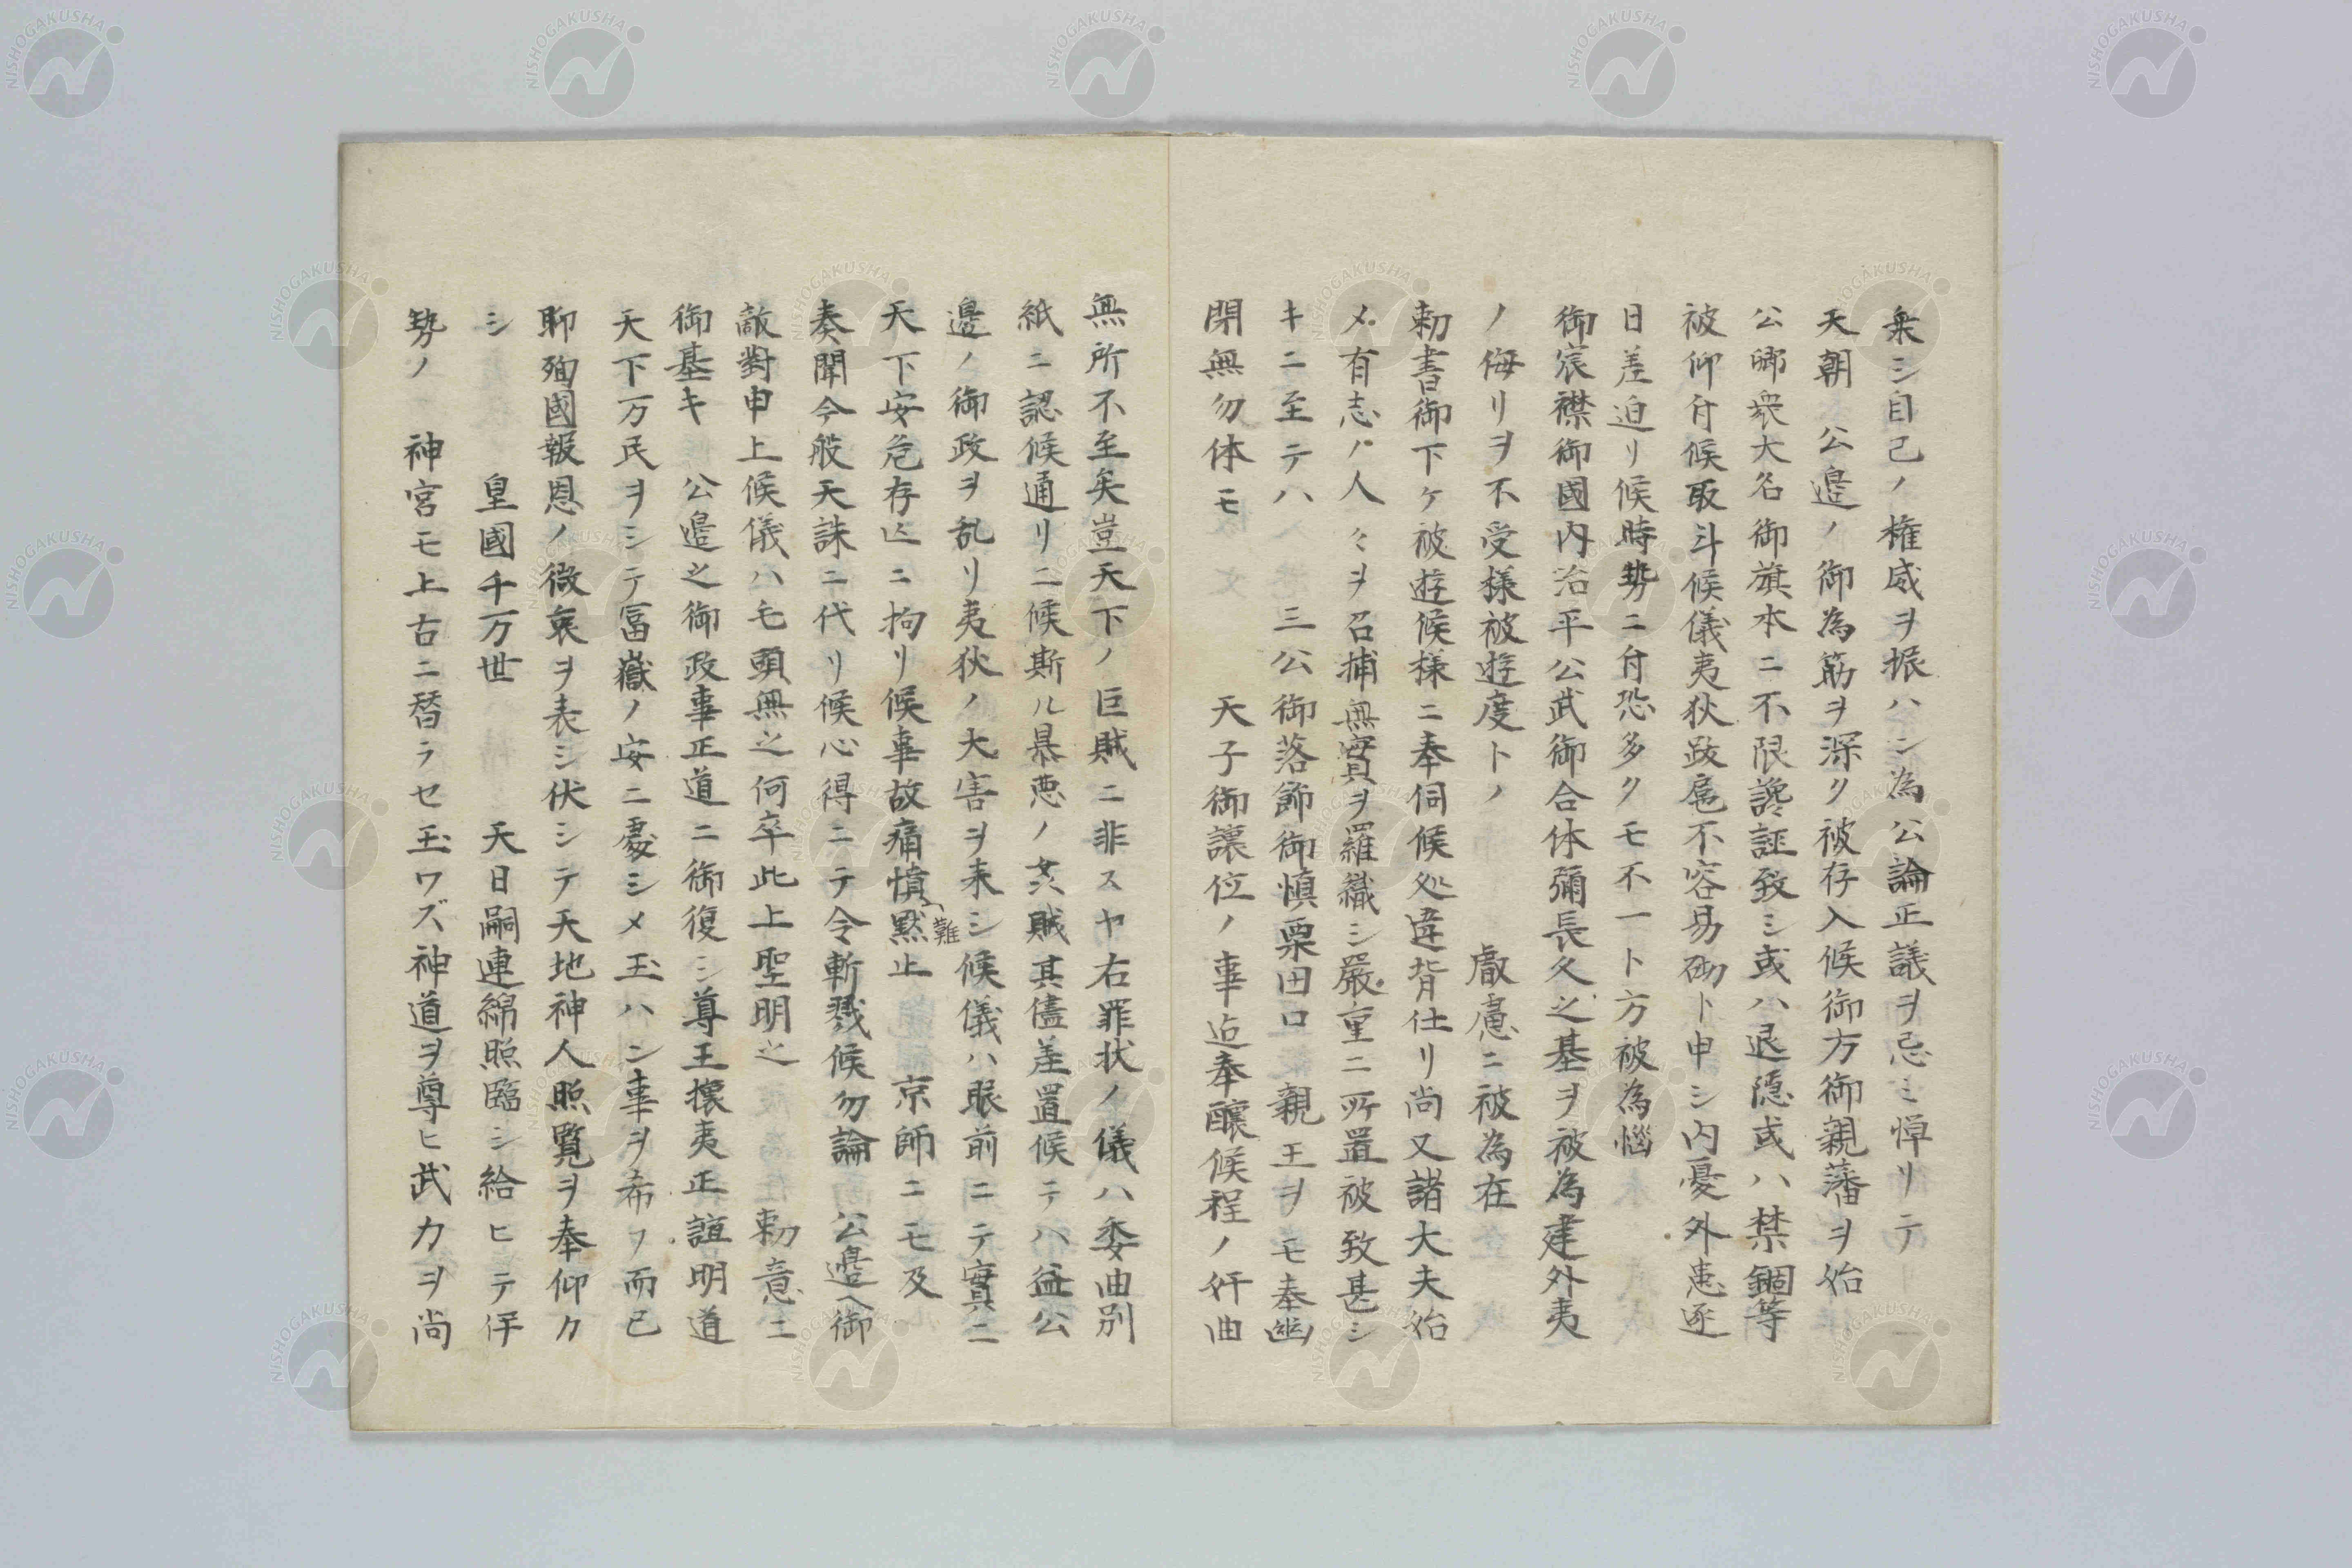 衆シ自己ノ権威ヲ振ハン為公論正議ヲ忌ミ悼リテ
天朝　公邉ノ御為筋ヲ深ク被存入候御方御親藩ヲ始
公卿衆大名御旗本ニ不限讒誣致シ或ハ退隠或ハ禁錮等
被仰付候取斗候儀夷狄跋扈不容易砌ト申シ内憂外患逐
日差迫リ候時勢ニ付恐多クモ不一ト方被為悩
御宸襟御國内治平公武御合体彌長久之基ヲ被為建外夷
ノ侮リヲ不受様被遊度トノ　叡慮ニ被為在
勅書御下ケ被遊候様ニ奉伺候処違背仕リ尚又諸大夫始
メ有志ノ人々ヲ召捕無實ヲ羅織シ嚴重ニ所置被致甚シ
キニ至テハ　三公御落飾御慎粟田口　親王ヲモ奉幽
閉無勿体モ　天子御譲位ノ事迄奉釀候程ノ奸曲
無所不至矣豈天下ノ巨賊ニ非スヤ右罪状ノ儀ハ委曲別
紙ニ認候通リニ候斯ル暴悪ノ賊其儘差置候テハ益公
邉ノ御政ヲ乱リ夷狄ノ大害ヲ来シ候儀ハ眼前ニテ實ニ
天下安危存亡ニ拘リ候事故痛憤難黙止　京師ニモ及
奏聞今般天誅ニ代リ候心得ニテ令斬戮候勿論　公邉ヘ御
敵對申上候儀ハ毛頭無之何卒此上聖明之　勅意ニ
御基キ　公邉之御政事正道ニ御復シ尊王攘夷正誼明道
天下万民ヲシテ冨嶽ノ安ニ慶シメ玉ハン事ヲ希フ而已
聊殉國報恩ノ微衷ヲ表シ伏シテ天地神人照覧ヲ奉仰カ
シ　皇國千万世　天日嗣連綿照臨シ給ヒテ伊
勢ノ　神宮モ上古ニ替ラセ玉ワズ神道ヲ尊ヒ武力ヲ尚
NISHOGAKUSHA